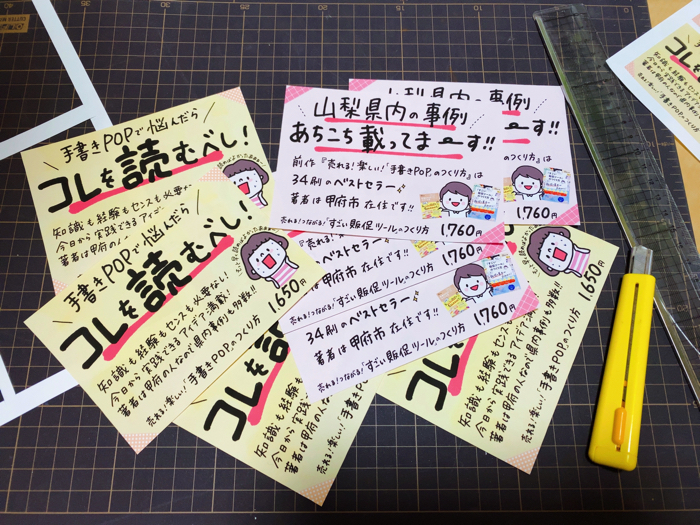 手書きPOPで悩んだら
コレを読むべし!
知識も経験もセンスも必要な
今日から実践できるアイデ
著者は甲府の人
手書きPOPで悩んだら
コレを読むべし!
知識も経験もセンスも必要なし!
今日から実践できるアイデア満載!
著者は甲府の人なので県内事例も多数!!
売れる!楽しい!手書きPOPのつくり方
1,650円
山梨県内の事例
あちこち載ってま〜す!!
前作『売れる!楽しい!「手書きPOP」のつくり方』は
34刷のベストセラー
著者は甲府市在住です!!
売れる!つながる!「すごい販促ツール」のつくり方
1,760円
山梨県内の事例
す!!
のつくり方』は
1,760円
『売れる!楽しい!「手書き
34刷のベストセラー
著者は甲府市在住です!!
売れる!つながる!「すごい販促ツール」のつくり方
1,760円
34刷のベストセラー
著者は甲府市在住です!!
売れる!つながる!「すごい販促ツール」のつくり方
1,760円
コレを読
知識も経験もセン
今日から実践できる
著者は甲府の人なの
売れる!楽しい!手書き
コレを
知識も経験もセンスも必要
今日から実践できるアイデ
著者は甲府の人なので県内事例も多数!!
売れる!楽しい!手書きPOPのつくり方
1,650円